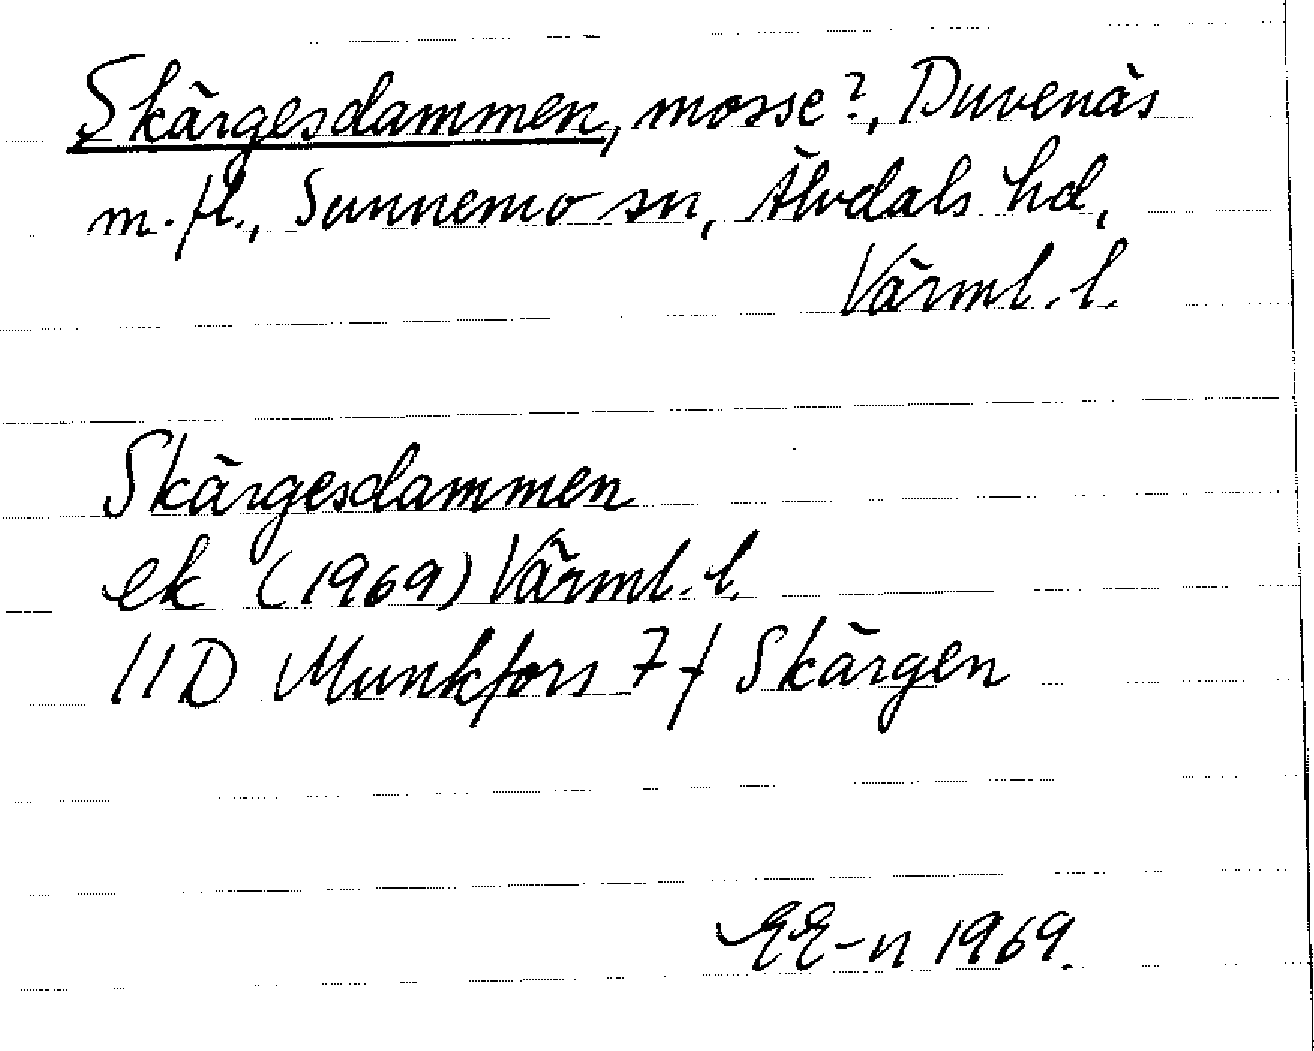 Skärgesdammen, mosse?, Duvenäs
m.fl., Sunnemo sn, Älvdals hd,
Värml. l.
Skärgesdammen
ek (1969) Värml. l.
11D Munkfors 7 f Skärgen
EE-n 1969.